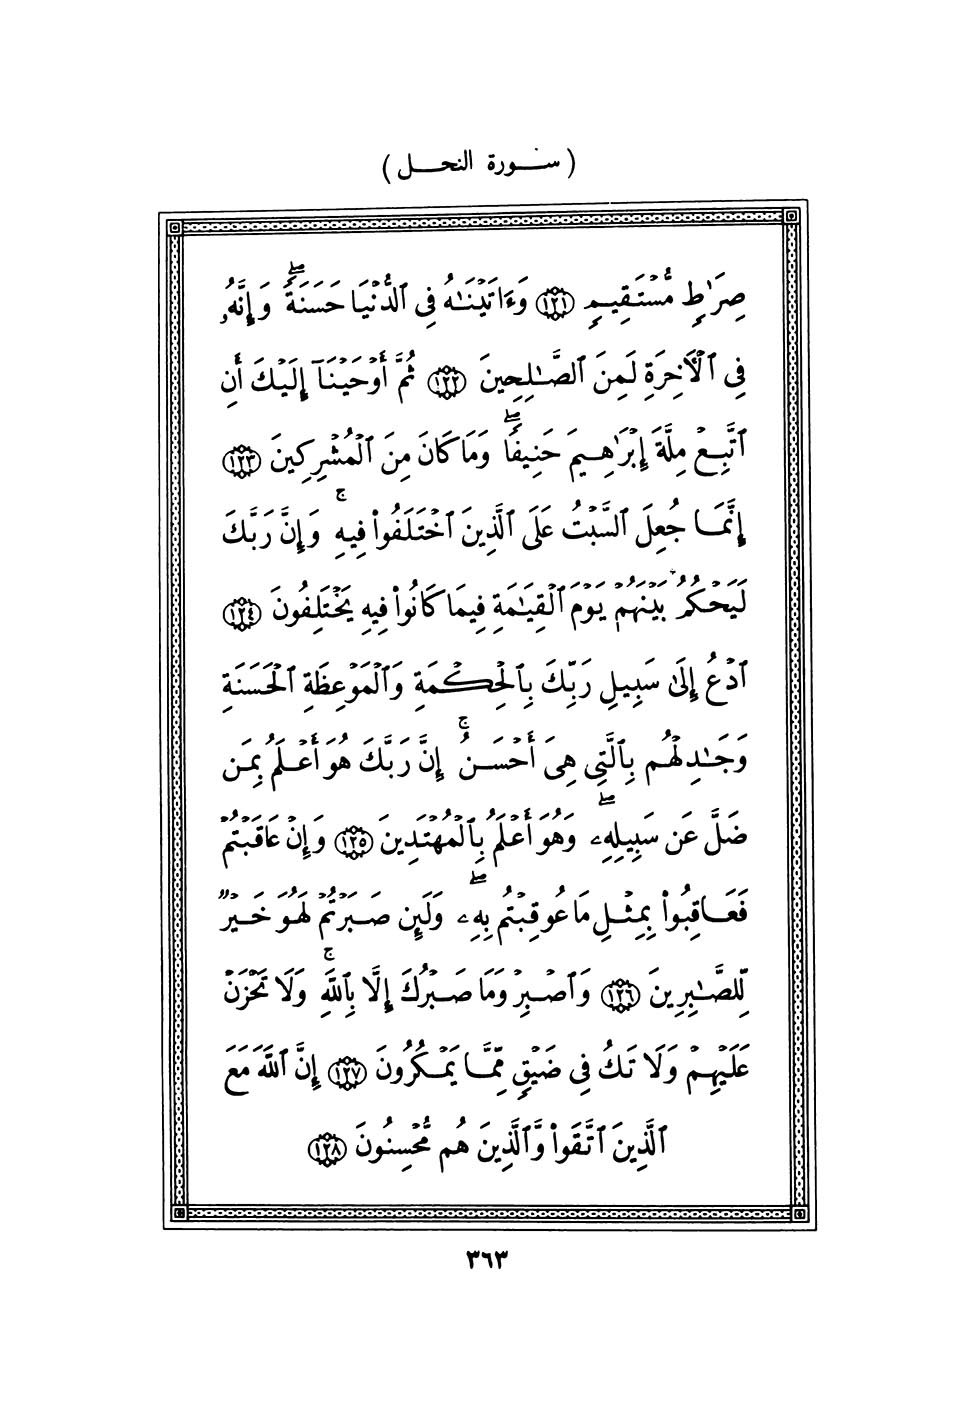 ( سورة النحل )
صِرَٰطٍ مُّسْتَقِيمٍ ١٢١ وَءَاتَيْنَٰهُ فِى ٱلدُّنْيَا حَسَنَةً ۖ وَإِنَّهُۥ
فِى ٱلْأَخِرَةِ لَمِنَ ٱلصَّٰلِحِينَ ١٢٢ ثُمَّ أَوْحَيْنَآ إِلَيْكَ أَنِ
ٱتَّبِعْ مِلَّةَ إِبْرَٰهِيمَ حَنِيفًا ۖ وَمَا كَانَ مِنَ ٱلْمُشْرِكِينَ ١٢٣
إِنَّمَا جُعِلَ ٱلسَّبْتُ عَلَى ٱلَّذِينَ ٱخْتَلَفُوا۟ فِيهِ ۚ وَإِنَّ رَبَّكَ
لَيَحْكُمُ بَيْنَهُمْ يَوْمَ ٱلْقِيَٰمَةِ فِيمَا كَانُوا۟ فِيهِ يَخْتَلِفُونَ ١٢٤
ٱدْعُ إِلَىٰ سَبِيلِ رَبِّكَ بِٱلْحِكْمَةِ وَٱلْمَوْعِظَةِ ٱلْحَسَنَةِ
وَجَٰدِلْهُم بِٱلَّتِى هِىَ أَحْسَنُ ۚ إِنَّ رَبَّكَ هُوَ أَعْلَمُ بِمَن
ضَلَّ عَن سَبِيلِهِۦ ۖ وَهُوَ أَعْلَمُ بِٱلْمُهْتَدِينَ ١٢٥ وَإِنْ عَاقَبْتُمْ
فَعَاقِبُوا۟ بِمِثْلِ مَا عُوقِبْتُم بِهِۦ ۖ وَلَئِن صَبَرْتُمْ لَهُوَ خَيْرٌ
لِّلصَّٰبِرِينَ ١٢٦ وَٱصْبِرْ وَمَا صَبْرُكَ إِلَّا بِٱللَّهِ ۚ وَلَا تَحْزَنْ
عَلَيْهِمْ وَلَا تَكُ فِى ضَيْقٍ مِّمَّا يَمْكُرُونَ ١٢٧ إِنَّ ٱللَّهَ مَعَ
ٱلَّذِينَ ٱتَّقَوا۟ وَّٱلَّذِينَ هُم مُّحْسِنُونَ ١٢٨
٣٦٣